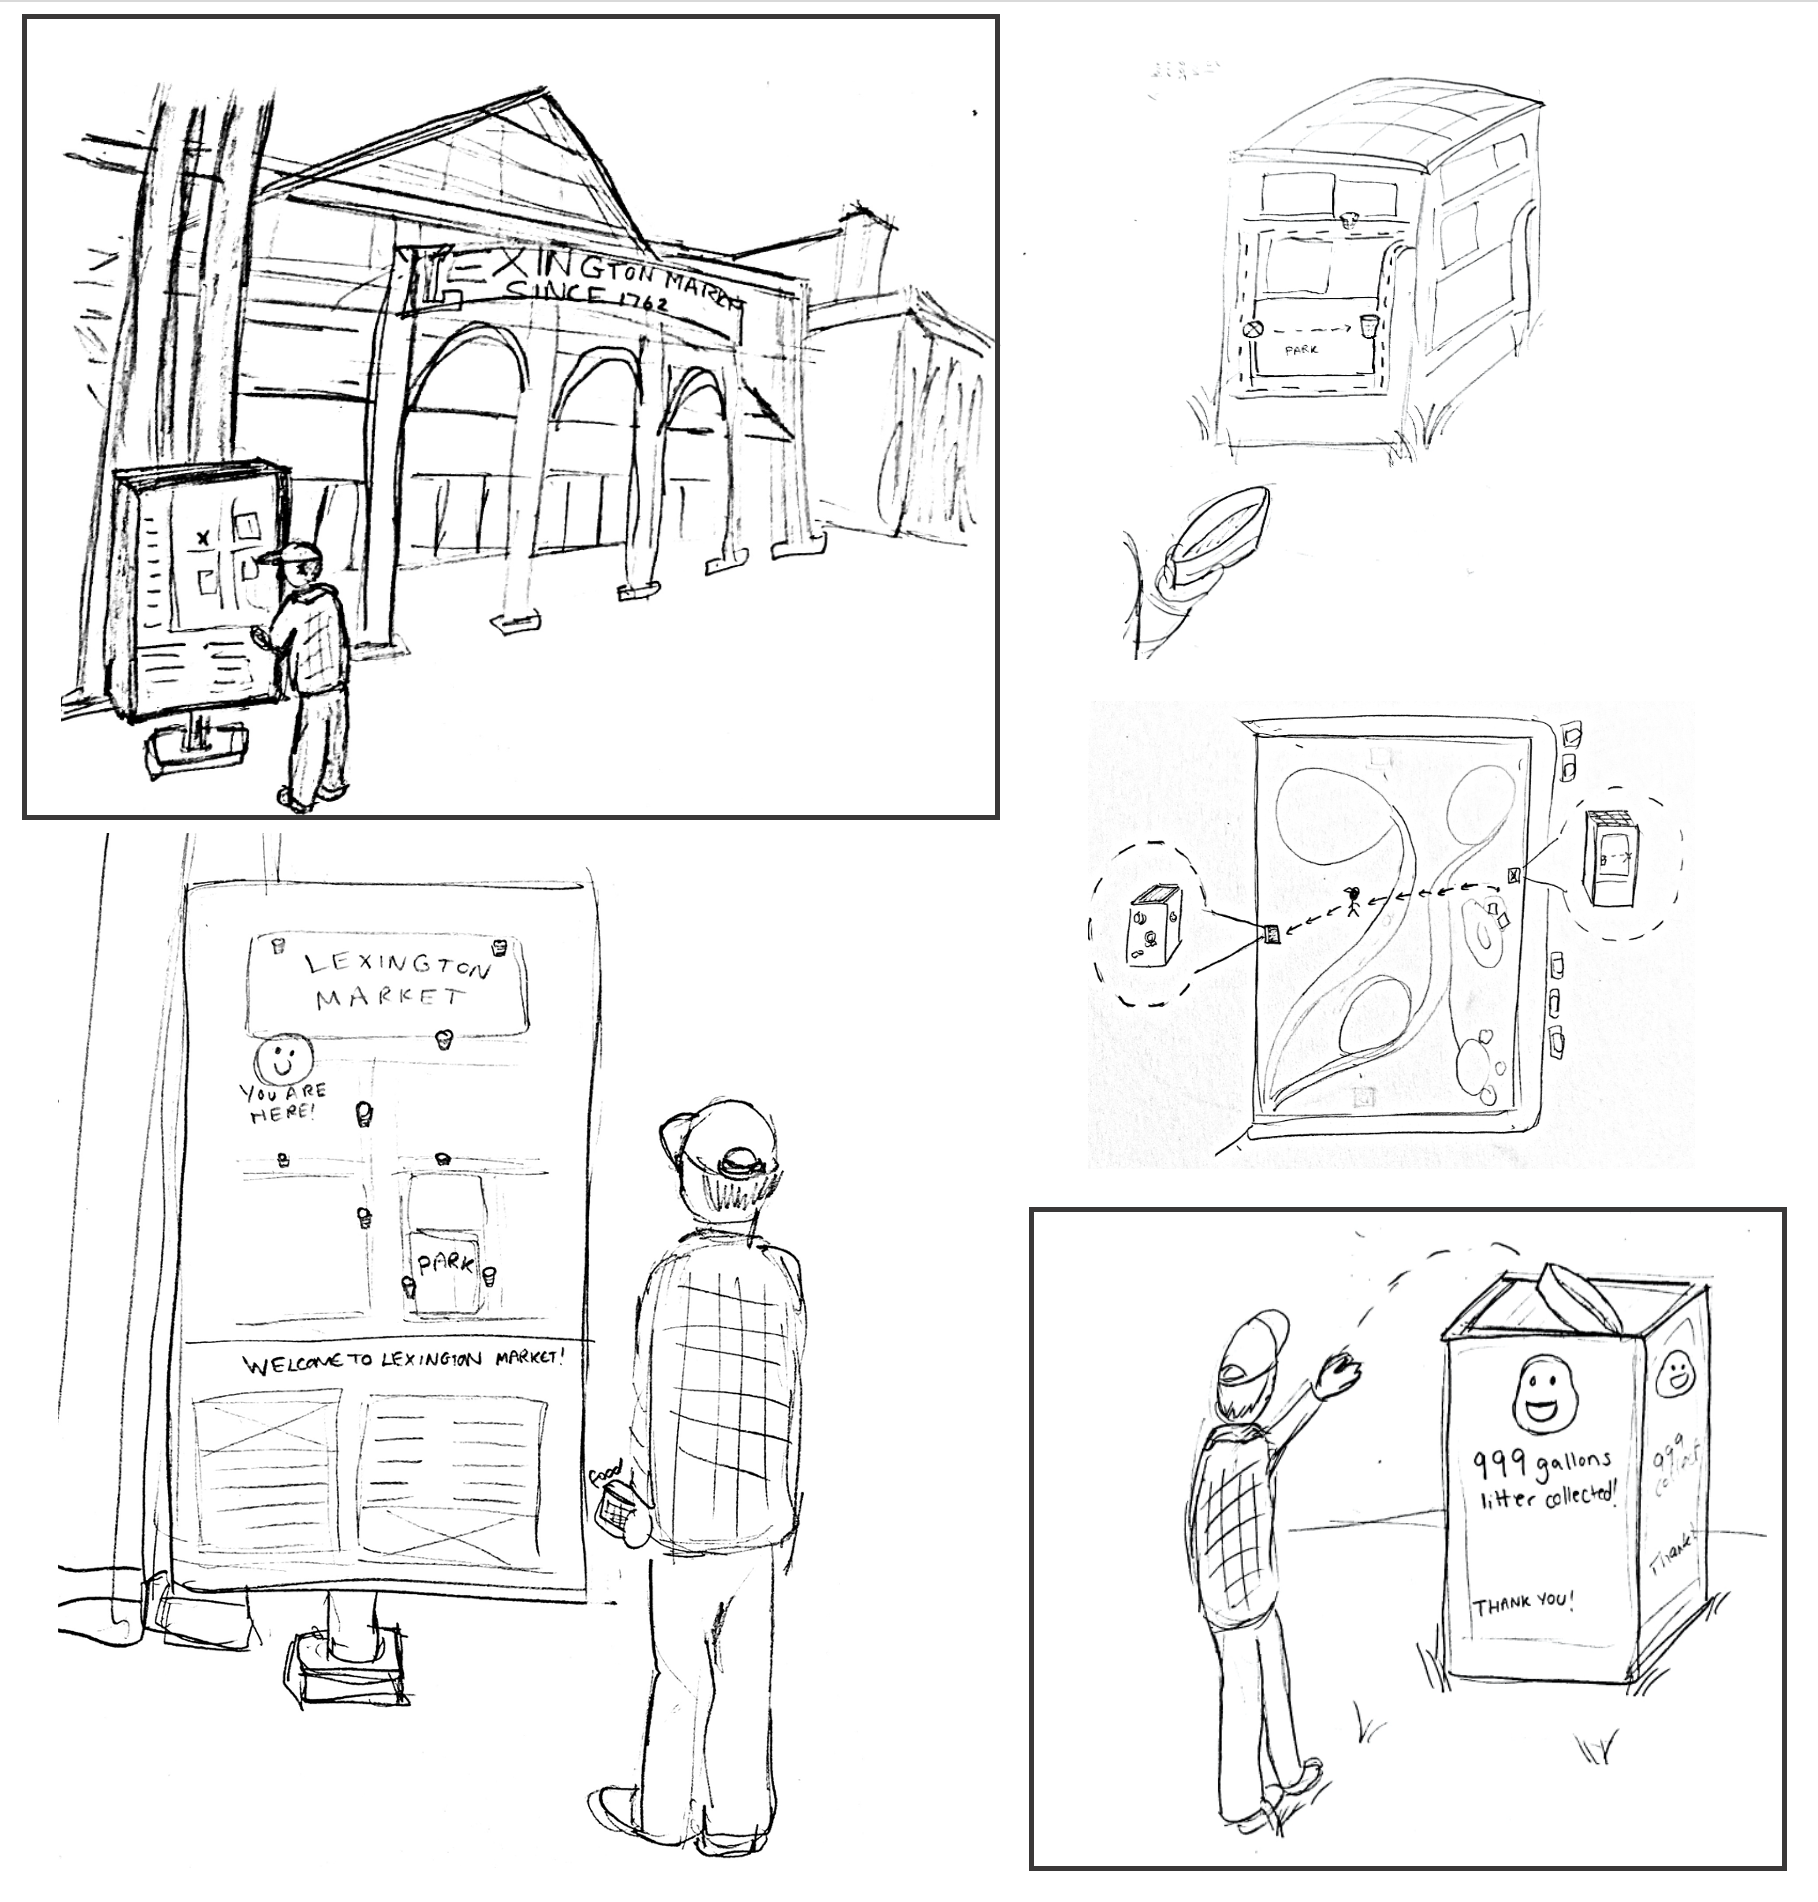 LEXINGTON MARKET
SINCE 1762
LEXINGTON
MARKET
YOU ARE
HERE!
PARK
WELCOME TO LEXINGTON MARKET!
food
PARK
999 gallons
litter collected!
THANK YOU!
999
Thank